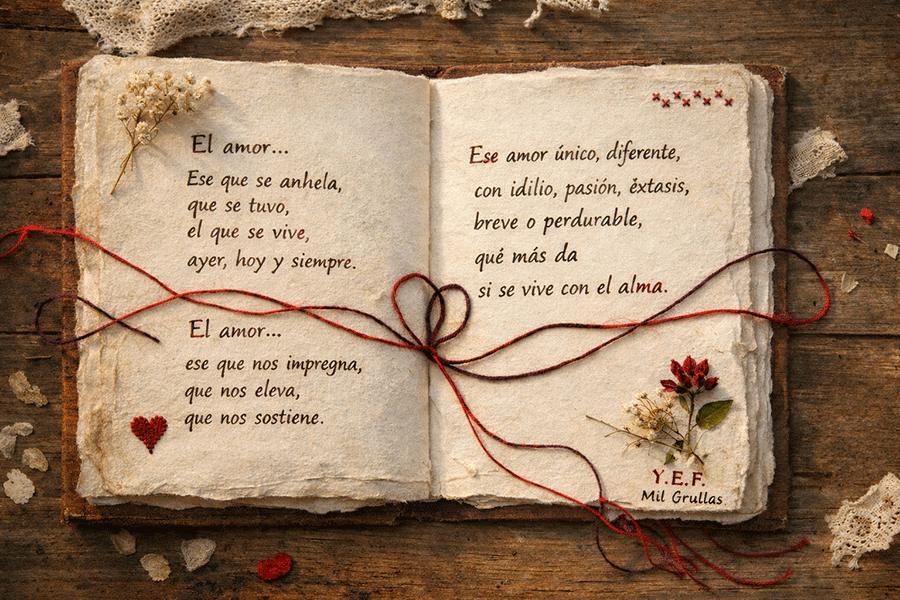 El amor...
Ese que se anhela,
que se tuvo,
el que se vive,
ayer, hoy y siempre.
El amor...
ese que nos impregna,
que nos eleva,
que nos sostiene.
Ese amor único, diferente,
con idilio, pasión, éxtasis,
breve o perdurable,
qué más da
si se vive con el alma.
Y.E.F.
Mil Grullas